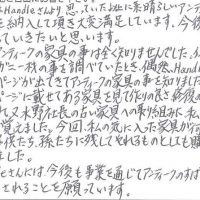 Handleさんより、思っていた以上に素晴らしいアンティ
を納入して頂き大変満足しています。今後
っていきたいと思います。
ティークの家具の事は全く知りませんでした。
が二一杖の事を調べていたとき、偶然、Handle
ページが出てきてアンティークの家具の事を知りました
ページに載せてある家具を見て作りの良さ 修復の
れ、又 水野社長の古い家具への取り組みに 私
覚えました。今回、私の気に入った家具が
供たち、孫たちに残してやれるものとしても購
ました。
eさんには、今後も事業を通じてアンティークのすば
されることを願っています。